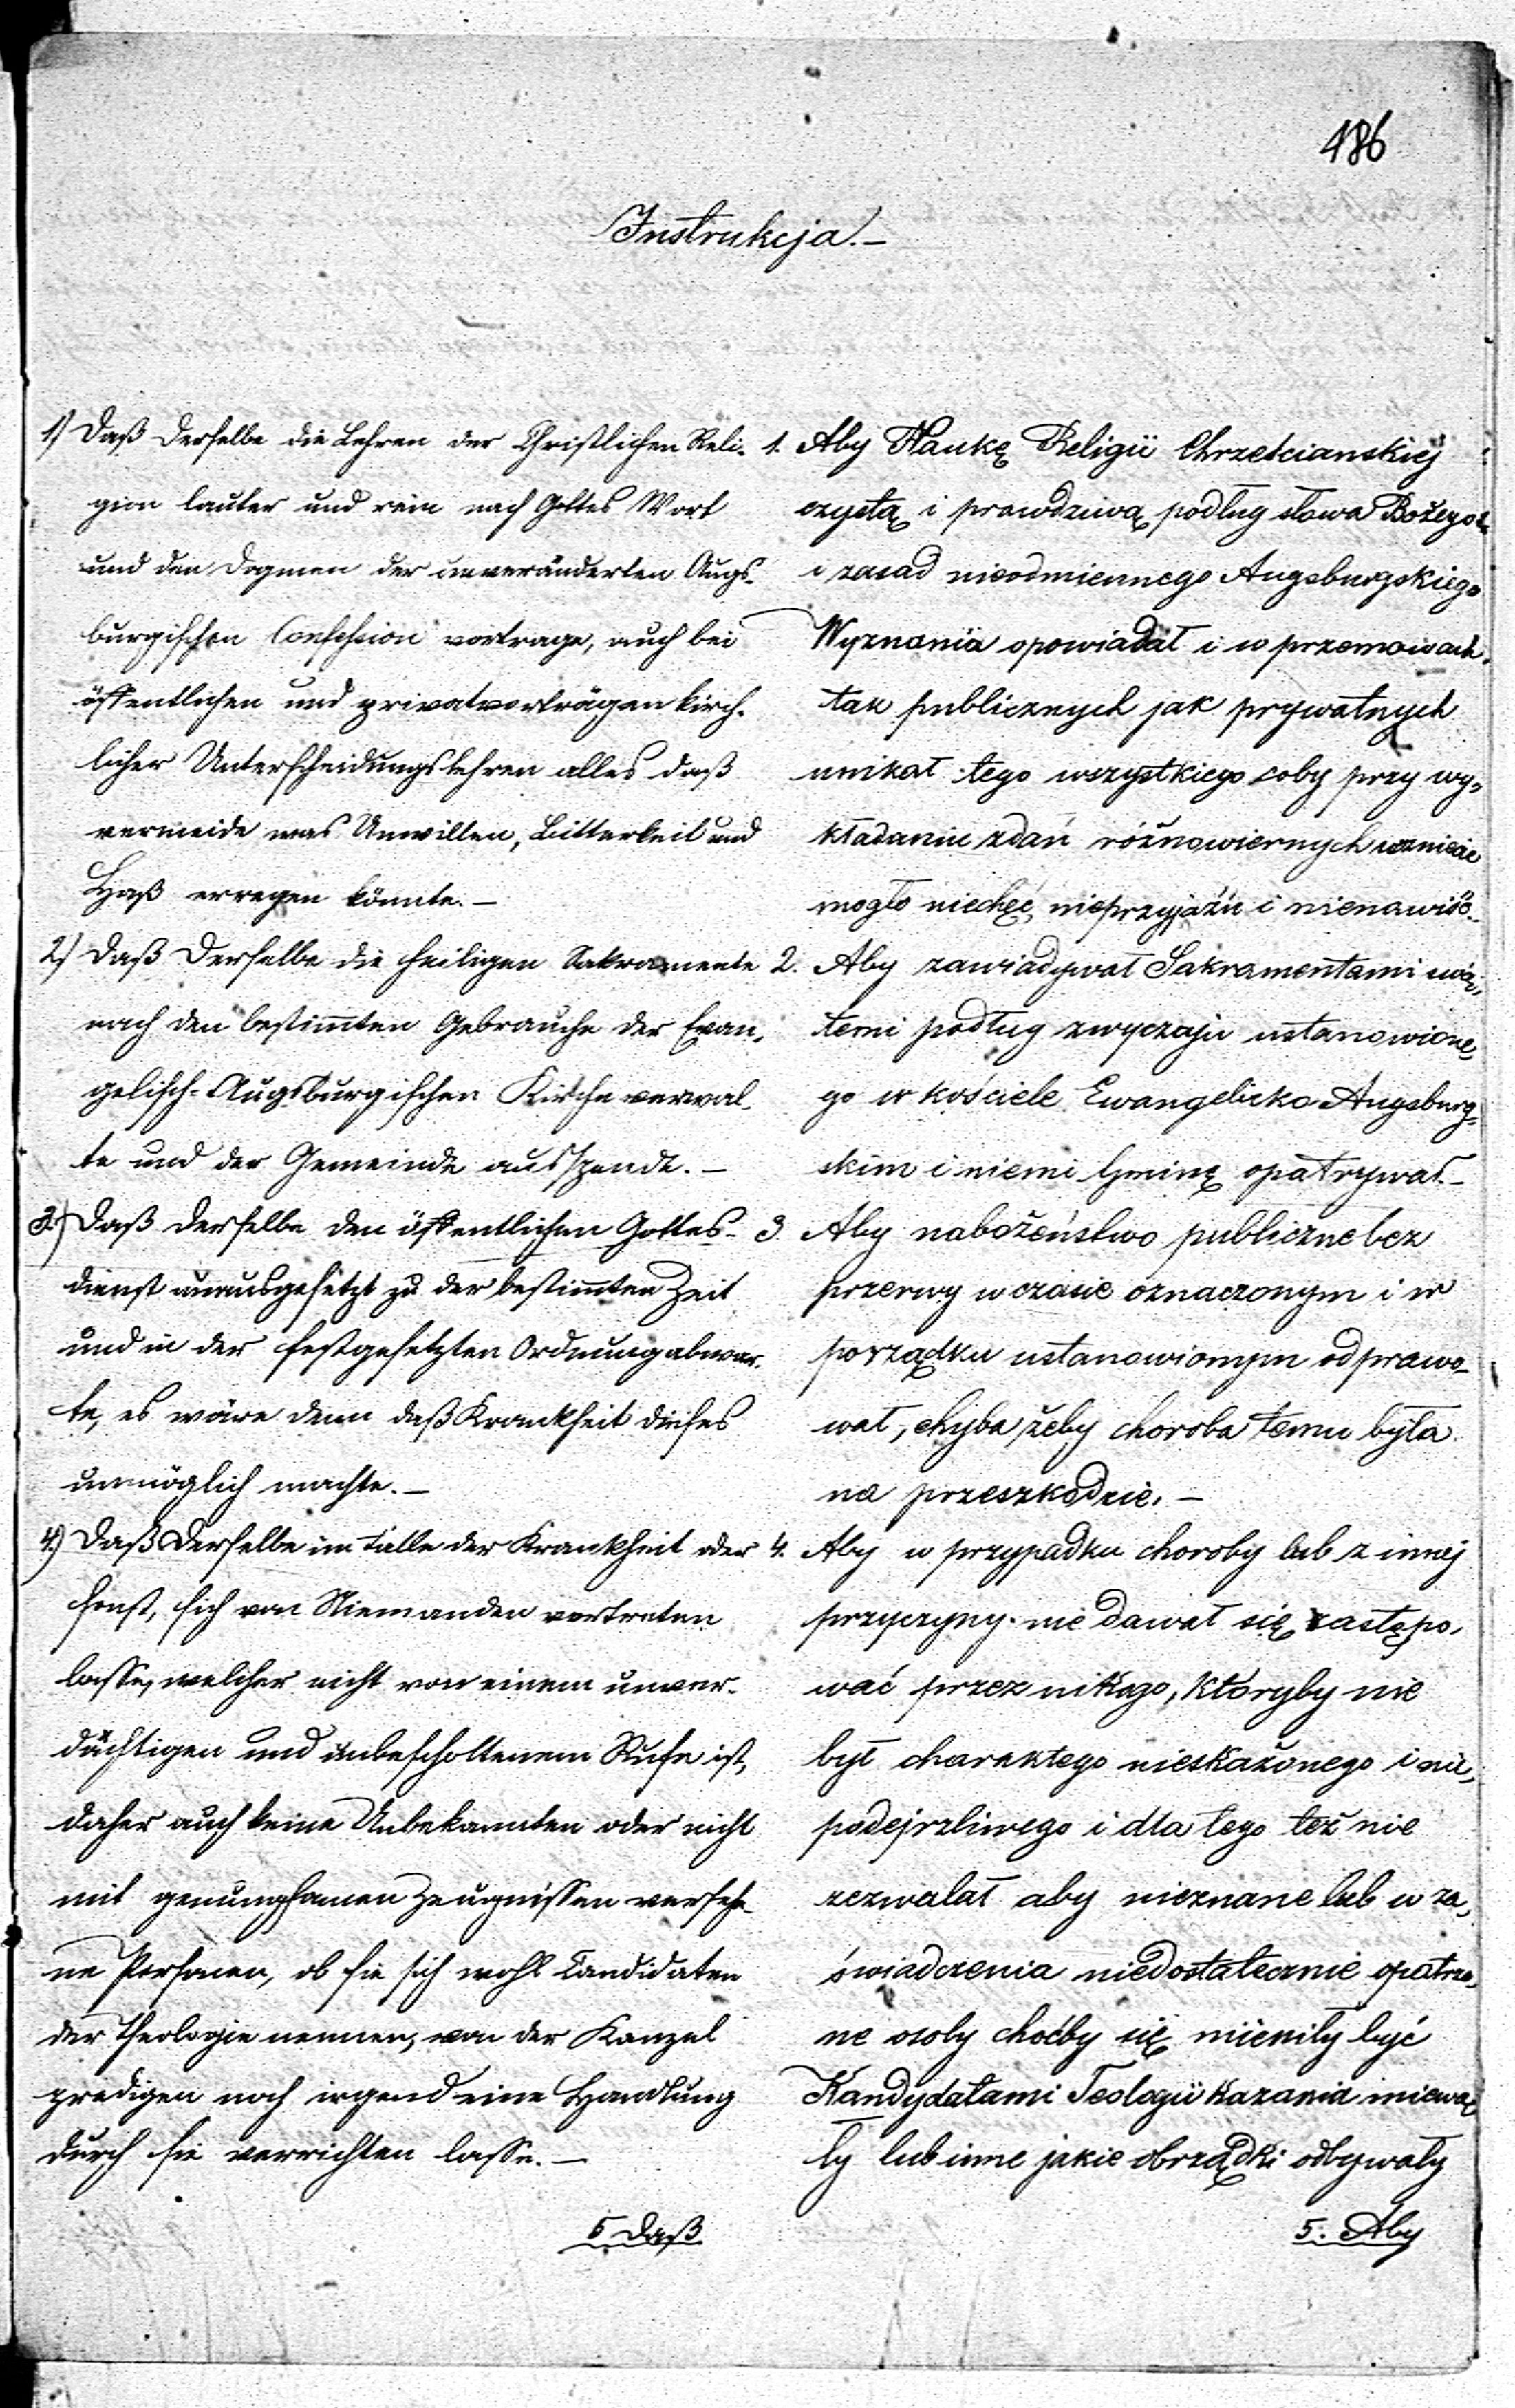 486
Instrukcja.—
1) Daß derselbe die Lehren der Christlichen Reli-
gion lauter und rein nach Gottes Wort
und den Dogmen der unveränderten Augs-
burgischen Confession vortrage, auch bei
öffentlichen und privatvorträgen kirch-
licher Unterscheidungslehren alles daß
vermeide was Unwillen, Bitterkeit und
Haß erregen könnte.—
2) Daß derselbe die heiligen Sakramente
nach den bestimten Gebrauche der Evan-
gelisch-Augsburgischen Kirche verwal-
te und der Gemeinde ausspende.—
3.) Daß derselbe den öffentlichen Gottes-
dienst unausgesetzt zu der bestimten Zeit
und in der festgesetzten Ordnung abwar-
te, es wäre denn daß Krankheit dieses
unmöglich machte.—
4.) Daß derselbe im Falle der Krankheit oder
sonst, sich von Niemanden vertreten
lasse, welcher nicht von einem unver-
dächtigen und unbescholtenem Rufe ist,
daher auch keine Unbekannten oder nicht
mit genungsamen Zeugnissen versehe-
ne Personen, ob sie sich wohl Candidaten
der Theologie nennen, von der Kanzel
predigen noch irgend eine Handlung
durch sie verrichten lasse.—
5 Daß
1. Aby Naukę Religii Chrześcianskiej
czystą i prawdziwą podług słowa Bożego
i zasad nieodmiennego Augsburgskiego
Wyznania opowiadał i w przemowach
tak publicznych jak prywatnych
unikał tego wszystkiego coby przy wy-
kładaniu zdań różnowiernych wzniecić
mogło niechęć, nieprzyjaźń i nienawiść.
2. Aby zawiadywał Sakramentami świę-
temi podług zwyczaju ustanowione-
go w kościele Ewangelicko Augsburg-
skim i niemi Gminę opatrywał.—
3 Aby nabożeństwo publiczne bez
przerwy w czasie oznaczonym i w
porządku ustanowionym odprawo-
wał, chyba żeby choroba temu była
na przeszkodzie.—
4. Aby w przypadku choroby lub z innej
przyczyny nie dawał się zastępo-
wać przez nikogo, któryby nie
był charaktego nieskażonego i nie-
podejrzliwego i dla tego też nie
zezwalał aby nieznane lub w za-
świadczenia niedostatecznie opatrzo-
ne osoby choćby się mieniły być
Kandydatami Teologii kazania miewa-
ły lub inne jakie obrządki odbywały
5. Aby